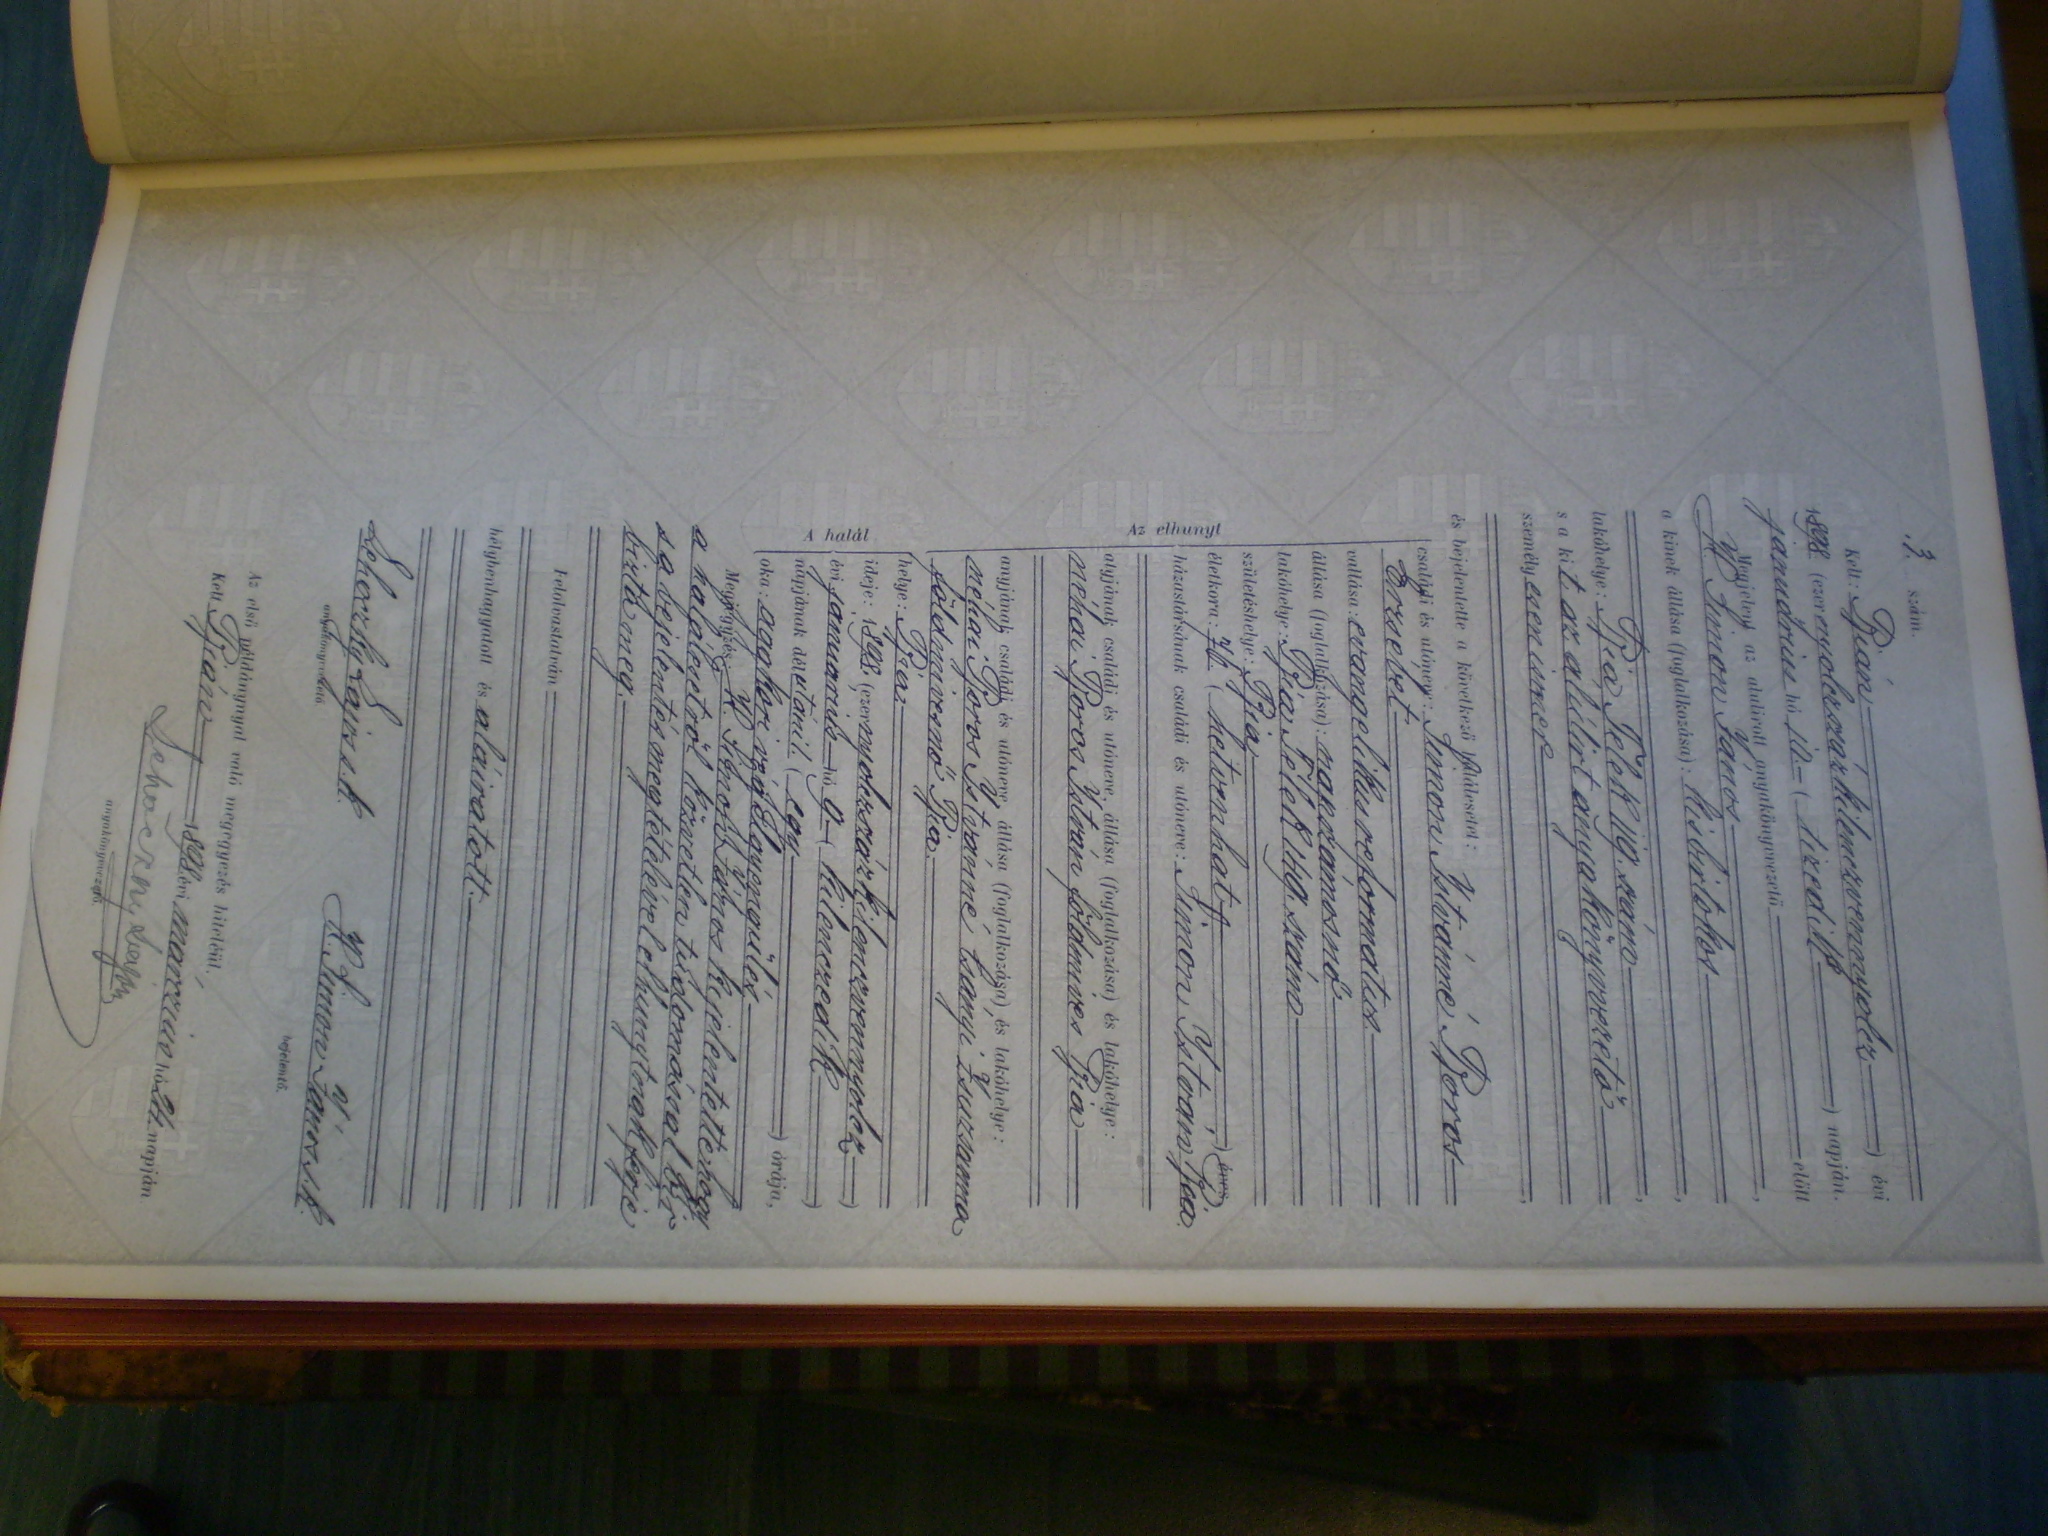 7. szám.
Kelt: Bján, ) évi
1898 (ezernyolczszázkilenczvennyolcz
januárius hó 10. ( tizedik ) napján.
Megjelent az alulírott anyakönyvvezető előtt
K. Simon János
a kinek állása (foglalkozása): kisbirtokos
lakóhelye: Bia Telek szám
s a kit az alulírt anyakönyvvezető
személyesen ismer
és bejelentette a következő halálesetet:
Az elhunyt
családi és utóneve: Simon Istvánné Boros
Erzsébet
vallása: evangelikus református
állása (foglalkozása): napszámosnő
lakóhelye: Bia Telek szám
születéshelye: Bia
életkora: 76 ( hetvenhat ) éves,
házastársának családi és utóneve: Simon István Bia.
atyjának családi és utóneve, állása (foglalkozása) és lakóhelye:
néhai Boros István földmíves Bia
anyjának családi és utóneve, állása (foglalkozása) és lakóhelye:
néhai Boros Istvánné Csanyi Zsuzsanna
földmívesnő Bia.
A halál
helye: Bia.
ideje: 1898. (ezernyolczszázkilenczvennyolcz )
évi januarius hó 9 ( kilenczedik )
napjának délutáni 1. ( egy ) órája,
oka: aggkori végelgyengülés
Megjegyzés: K. Simon János kijelentette hogy
a halálesetről közvetlen tudomással bír
s a bejelentés megtételére elhunytnak férje
bízta meg.
Felolvastatván
helybenhagyatott és aláíratott.
Lehoczky Lajos s.k. K. Simon János s.k.
anyakönyvvezető. bejelentő.
Az első példánynyal való megegyezés hiteléül.
Kelt Bján 1898 évi marczius hó napján
Lehoczky Lajos
anyakönyvvezető.